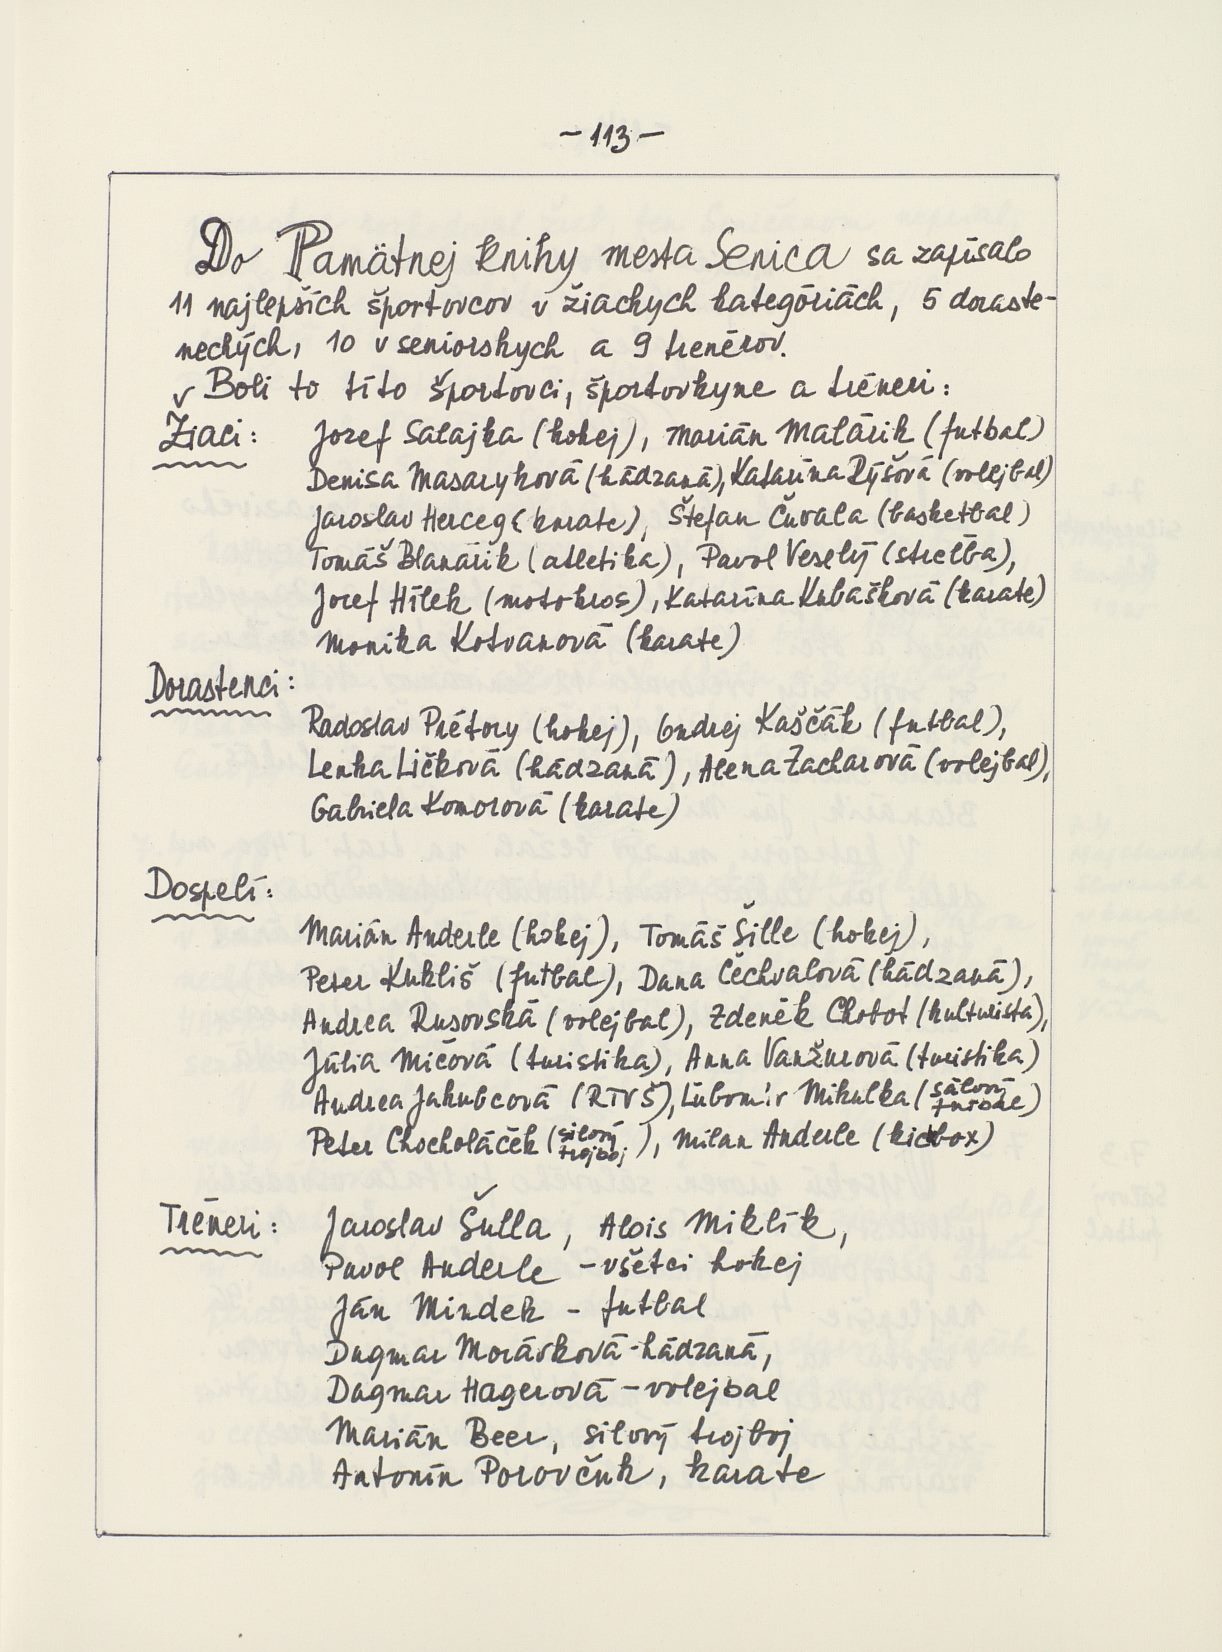 - 113 -
Do Pamätnej knihy mesta Senica sa zapísalo
11 najlepších športovcov v žiachych kategóriách, 5 doraste-
neckých, 10 v seniorskych a 9 trenérov.
Boli to títo športovci, športovkyne a tréneri:
Žiaci: Jozef Salajka (hokej), Marián Malárik (futbal)
Denisa Masaryková (hádzaná), Katarína Rýšová (volejbal)
Jaroslav Herceg (karate), Štefan Čuvala (basketbal)
Tomáš Blanárik (atletika), Pavol Veselý (streľba),
Jozef Hílek (motokros), Katarína Kubašková (karate)
Monika Kotvanová (karate)
Dorastenci:
Radoslav Prétory (hokej), Ondrej Kaščák (futbal),
Lenka Ličková (hádzaná), Alena Zacharová (volejbal),
Gabriela Komorová (karate)
Dospelí:
Marián Anderle (hokej), Tomáš Šille (hokej),
Peter Kukliš (futbal), Dana Čechvalová (hádzaná),
Andrea Rusovská (volejbal), Zdeněk Chotot (kulturista),
Júlia Mičová (turistika), Anna Vanžurová (turistika)
Andrea Jakubcová (RTVŠ), Ľubomír Mikulka (sálový futbal)
Peter Chocholáček (silový trojboj), Milan Anderle (kickbox)
Tréneri: Jaroslav Šulla, Alois Miklík,
Pavol Anderle - všetci hokej
Ján Mindek - futbal
Dagmar Morávková - hádzaná,
Dagmar Hagerová - volejbal
Marián Beer, silový trojboj
Antonín Porovčuk, karate